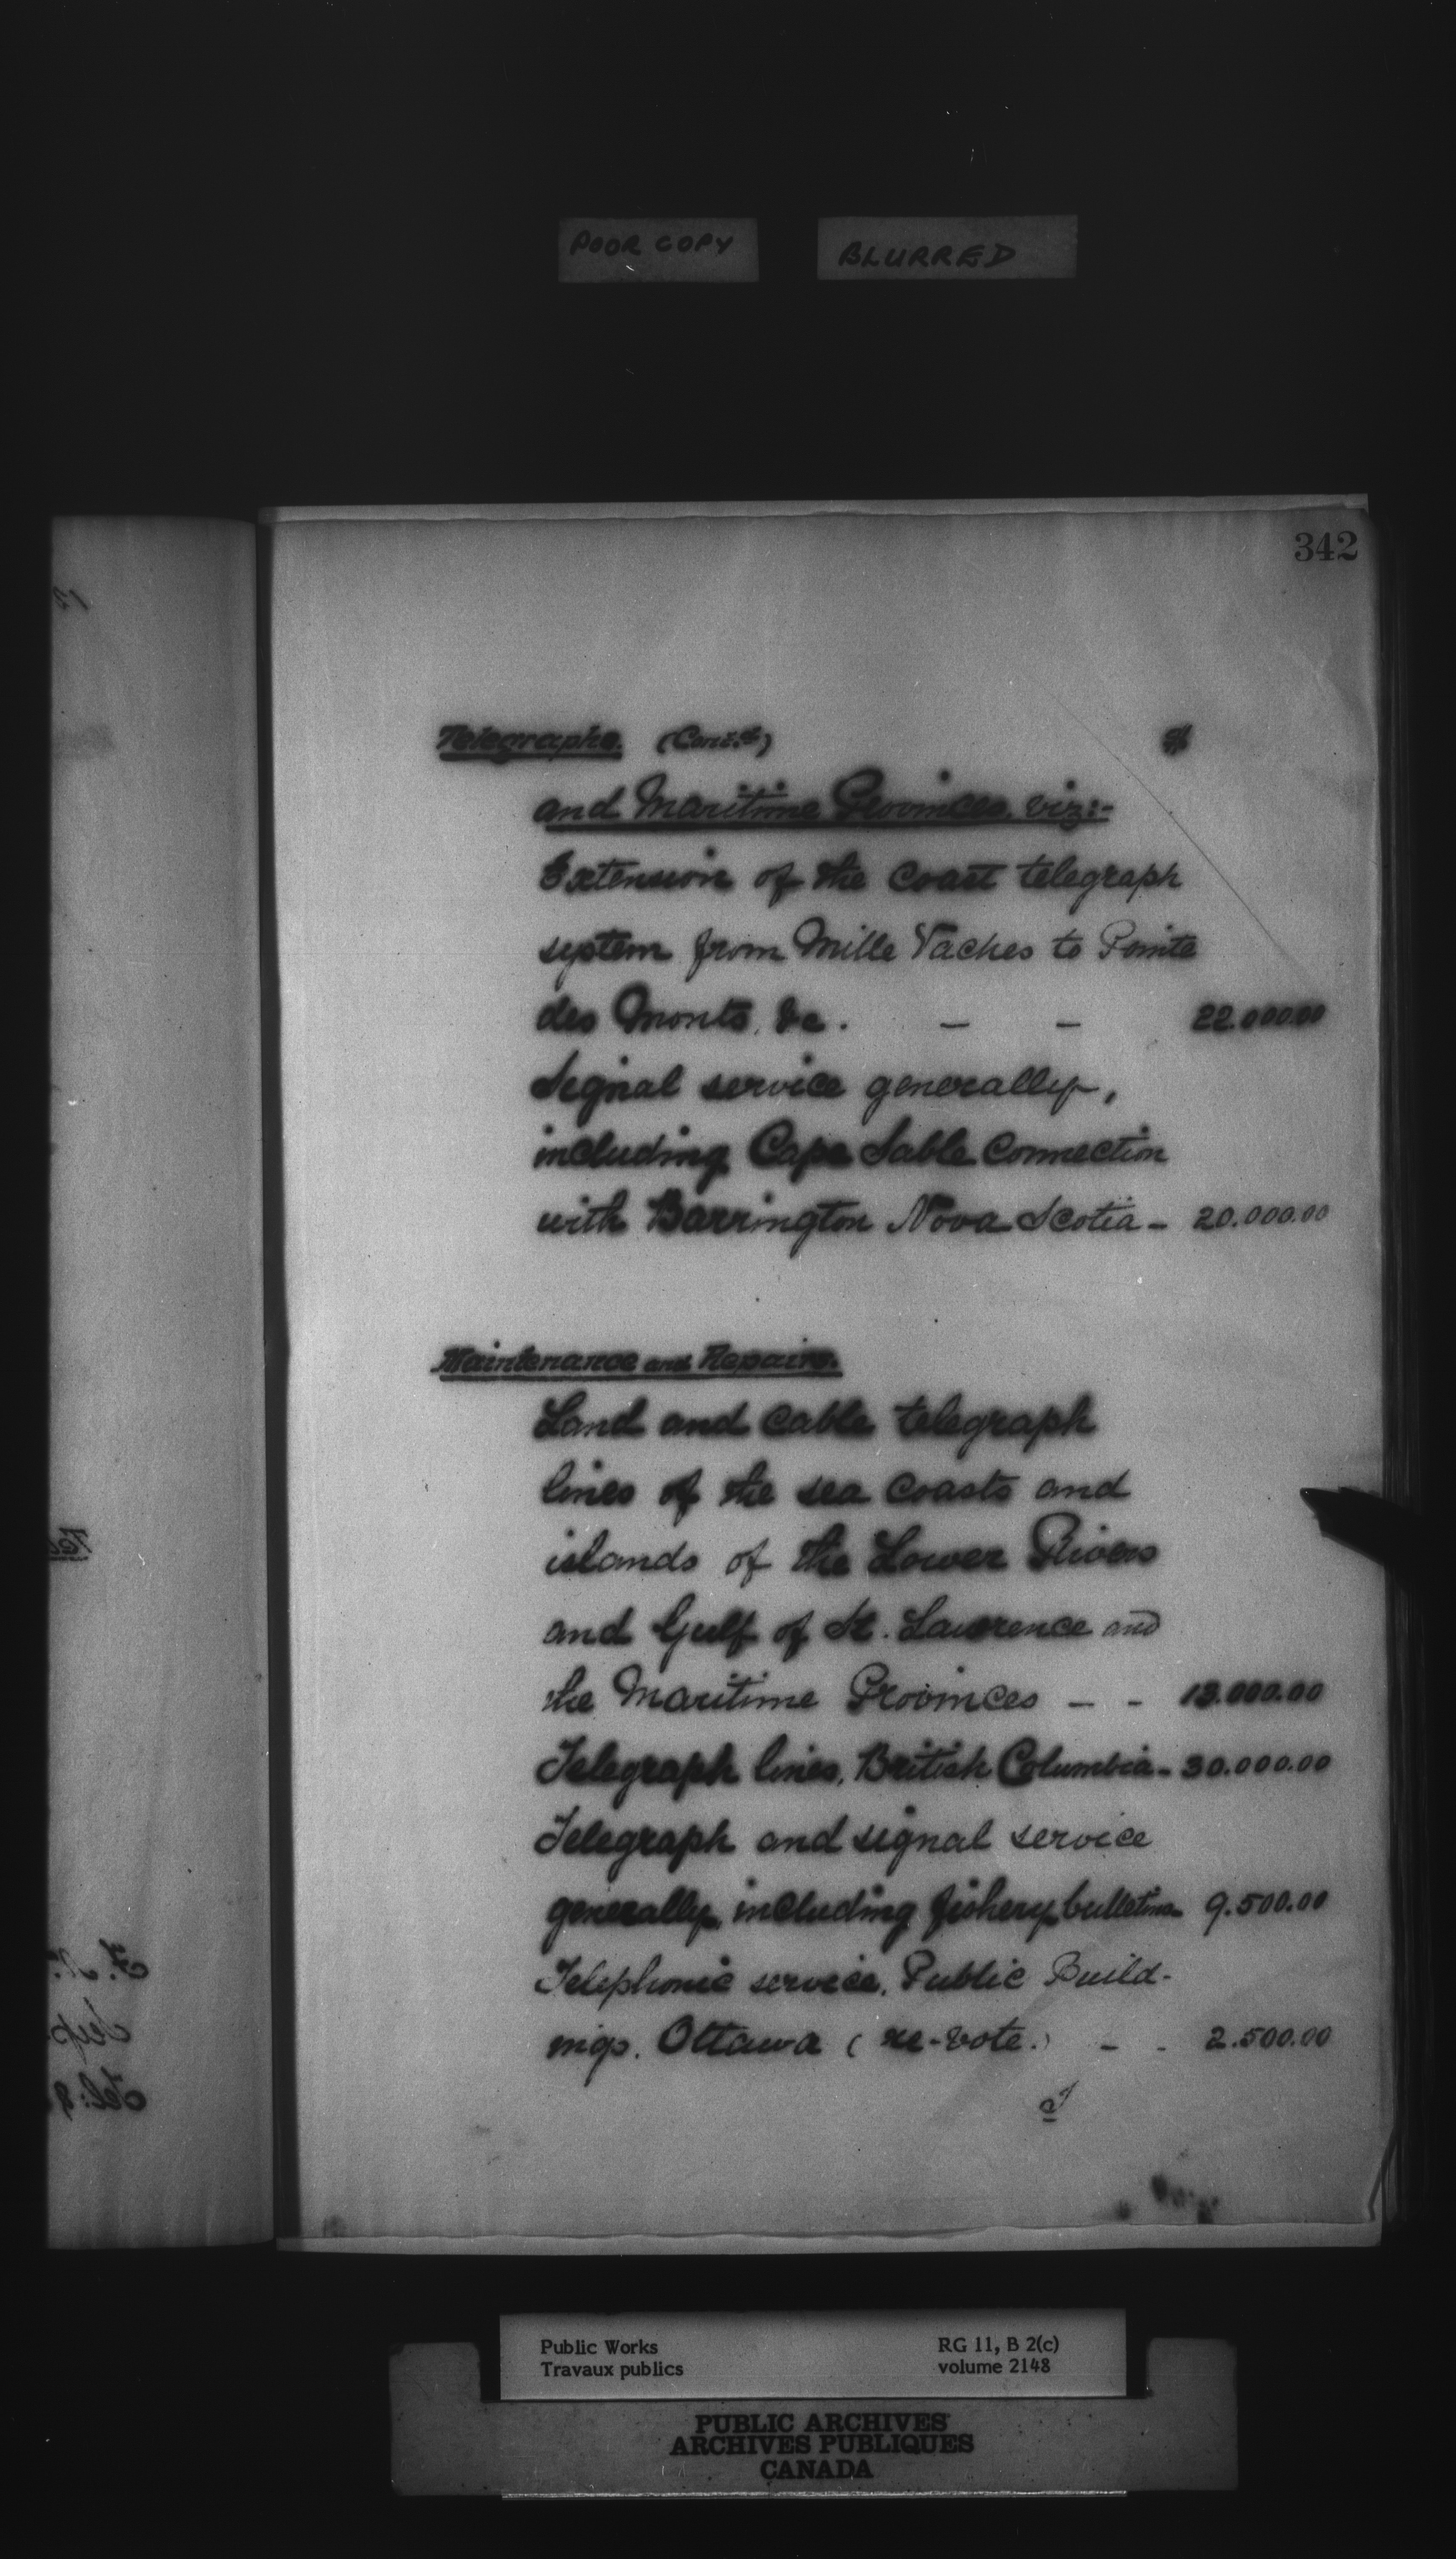 POOR COPY BLURRED
342
Telegraphs. (Cont.d) $
and Maritime Provinces, viz:-
Extension of the coast telegraph
system from Mille Vaches to Pointe
des Monts, &c. - - 22.000.00
Signal service generally,
including Cape Sable connection
with Barrington Nova Scotia - 20.000.00
Maintenance and Repairs.
Land and cable telegraph
lines of the sea coasts and
islands of the Lower Rivers
and Gulf of St. Lawrence and
the Maritime Provinces - - 13.000.00
Telegraph lines, British Columbia - 30.000.00
Telegraph and signal service
generally, including fishery bulletins 9.500.00
Telephonic service, Public Build-
ings. Ottawa (re-vote.) - - 2.500.00
Public Works RG 11, B 2(c)
Travaux publics volume 2148
PUBLIC ARCHIVES
ARCHIVES PUBLIQUES
CANADA